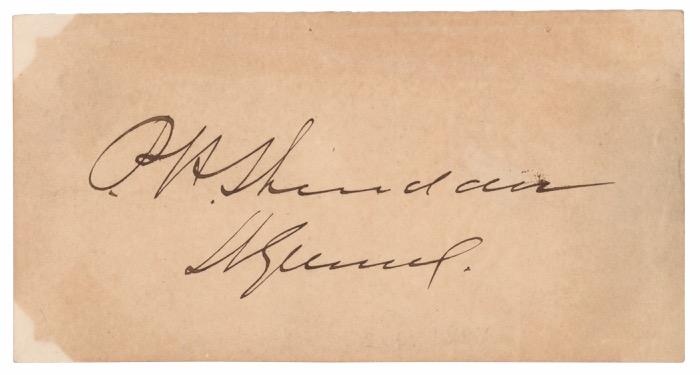 P. H. Sheridan
Lt General.